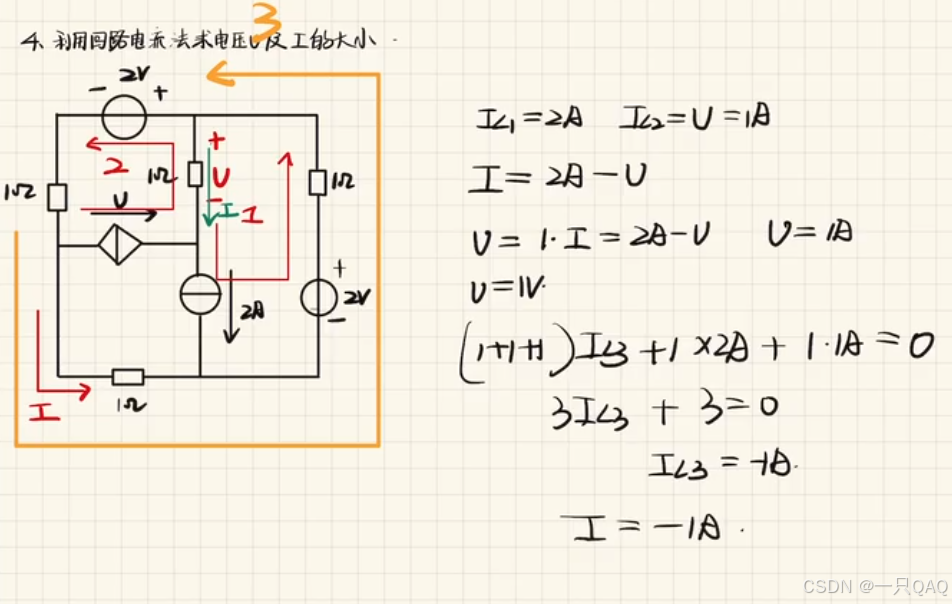 3
4、利用回路电流法求电压U及I的大小.
- 2V +
2
1Ω
U
1Ω
+
U
-
I
1
1Ω
1Ω
2A
+
2V
-
I
IL1=2A IL2=U=1A
I=2A-U
U=1·I=2A-U U=1A
U=1V.
(1+1+1)IL3+1×2A+1·1A=0
3IL3+3=0
IL3=-1A.
I=-1A.
CSDN @一只QAQ